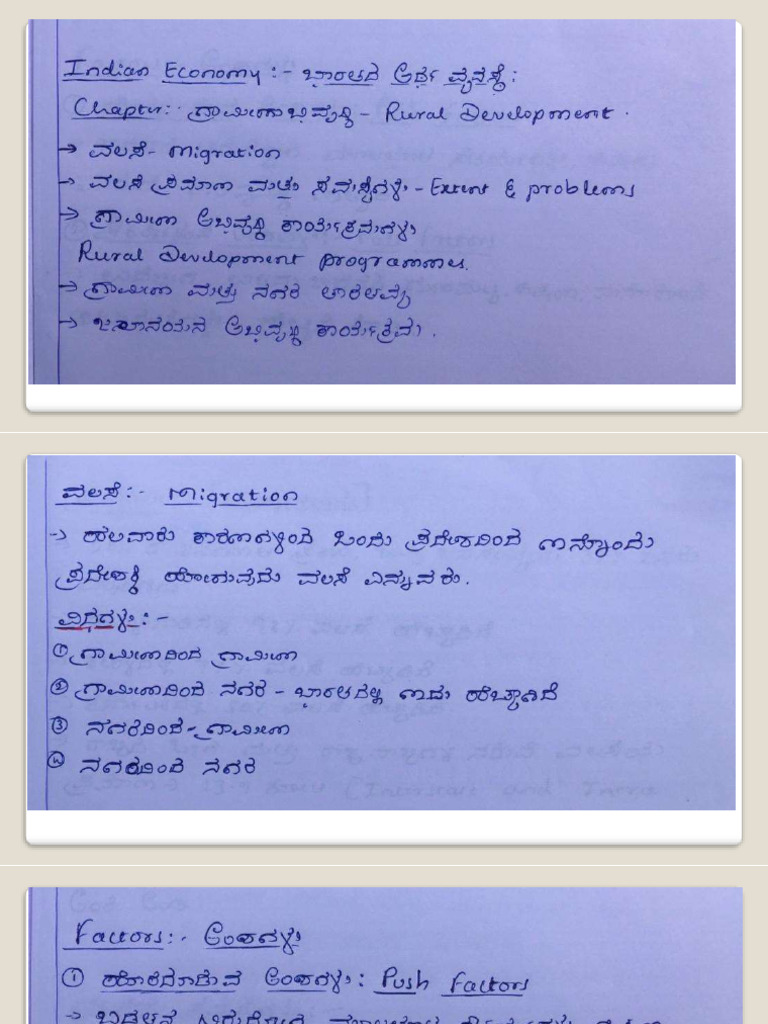 Indian Economy :- ಭಾರತದ ಆರ್ಥಿಕ ವ್ಯವಸ್ಥೆ :
Chapter: ಗ್ರಾಮೀಣಾಭಿವೃದ್ಧಿ - Rural Development.
→ ವಲಸೆ - Migration
→ ವಲಸೆ ಪ್ರಮಾಣ ಮತ್ತು ಸಮಸ್ಯೆಗಳು - Extent & problems
→ ಗ್ರಾಮೀಣ ಅಭಿವೃದ್ಧಿ ಕಾರ್ಯಕ್ರಮಗಳು
Rural Development programmes.
→ ಗ್ರಾಮೀಣ ಮತ್ತು ನಗರ ತಾರತಮ್ಯ
→ ಜಲಾನಯನ ಅಭಿವೃದ್ಧಿ ಕಾರ್ಯಕ್ರಮ.
ವಲಸೆ :- Migration
→ ಹಲವಾರು ಕಾರಣಗಳಿಂದ ಒಂದು ಪ್ರದೇಶದಿಂದ ಇನ್ನೊಂದು
ಪ್ರದೇಶಕ್ಕೆ ಹೋಗುವುದು ವಲಸೆ ಎನ್ನುವರು.
ವಿಧಗಳು :-
① ಗ್ರಾಮೀಣದಿಂದ ಗ್ರಾಮೀಣ
② ಗ್ರಾಮೀಣದಿಂದ ನಗರ - ಭಾರತದಲ್ಲಿ ಇದು ಹೆಚ್ಚಾಗಿದೆ
③ ನಗರದಿಂದ - ಗ್ರಾಮೀಣ
④ ನಗರದಿಂದ ನಗರ
Factors :- ಅಂಶಗಳು
① ಹೊರದೂಡುವ ಅಂಶಗಳು : Push Factors
→ ಬಡತನ